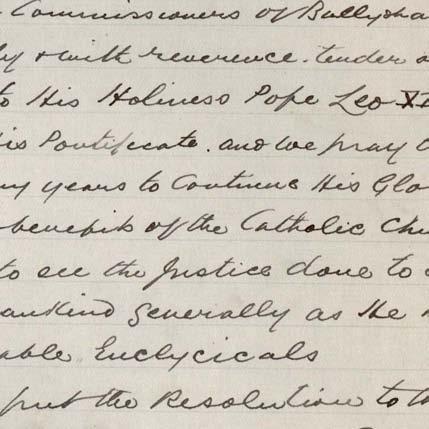 Commissioners of Ballysha
ly & with reverence. tender
to His Holiness Pope Leo XI
is Pontificate. and we pray
ny years to Continue His Glo
benefit of the Catholic Chu
to see the Justice done to
ankind generally as He
able Enclycicals
put the Resolution to th